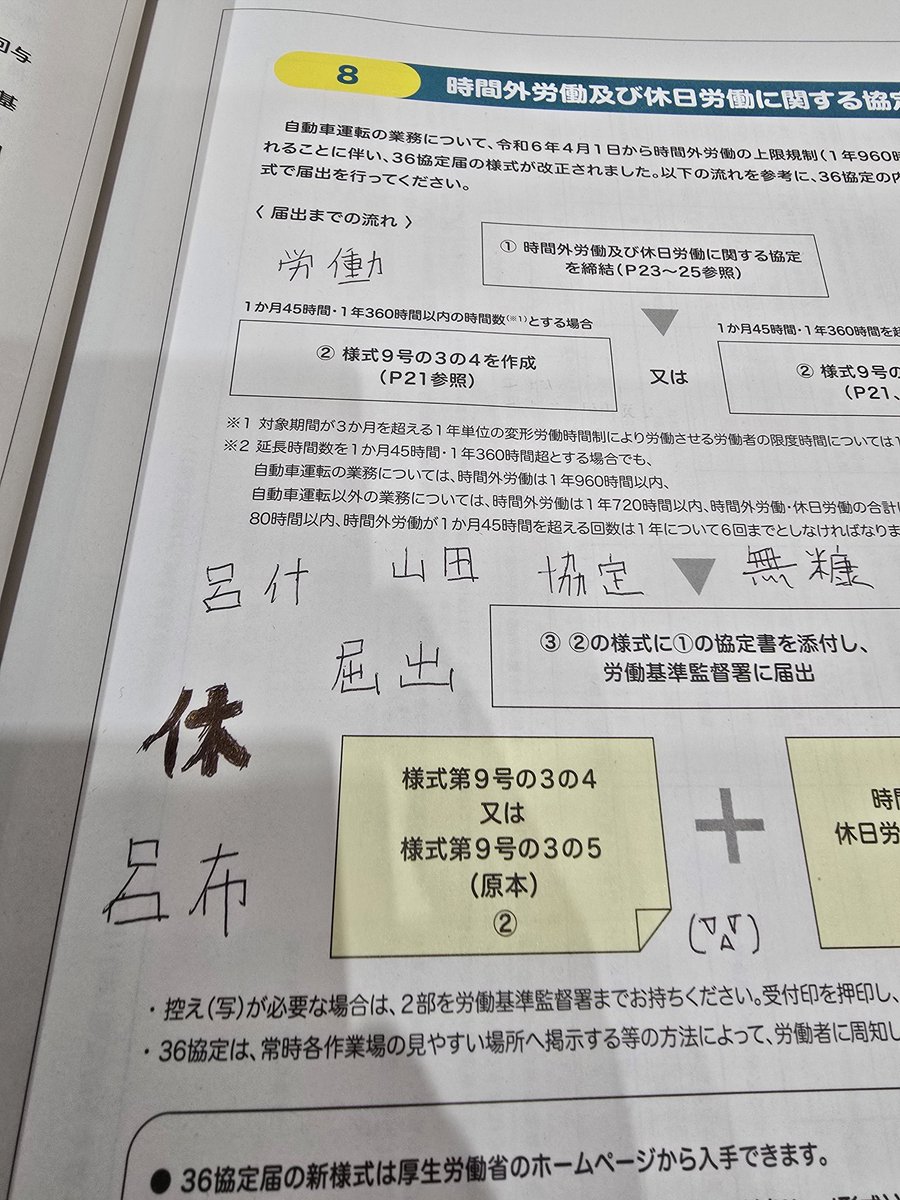 8
時間外労働及び休日労働に関する協定
自動車運転の業務について、令和6年4月1日から時間外労働の上限規制(1年960時
れることに伴い、36協定届の様式が改正されました。以下の流れを参考に、36協定の内
式で届出を行ってください。
〈 届出までの流れ 〉
① 時間外労働及び休日労働に関する協定
を締結(P23〜25参照)
労働
1か月45時間・1年360時間以内の時間数(※1)とする場合
1か月45時間・1年360時間を超
② 様式9号の3の4を作成
(P21参照)
又は
② 様式9号の
(P21、
※1 対象期間が3か月を超える1年単位の変形労働時間制により労働させる労働者の限度時間については1
※2 延長時間数を1か月45時間・1年360時間超とする場合でも、
自動車運転の業務については、時間外労働は1年960時間以内、
自動車運転以外の業務については、時間外労働は1年720時間以内、時間外労働・休日労働の合計
80時間以内、時間外労働が1か月45時間を超える回数は1年について6回までとしなければなりま
呂付 山田 協定 無糖
③ ②の様式に①の協定書を添付し、
労働基準監督署に届出
屈出
休
様式第9号の3の4
又は
様式第9号の3の5
(原本)
②
+
時間
休日労
呂布
・控え(写)が必要な場合は、2部を労働基準監督署までお持ちください。受付印を押印し、
・36協定は、常時各作業場の見やすい場所へ掲示する等の方法によって、労働者に周知し
● 36協定届の新様式は厚生労働省のホームページから入手できます。